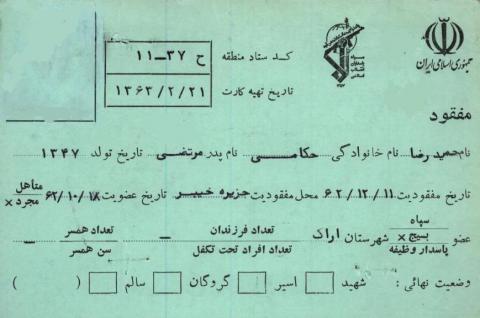 جمهوری اسلامی ایران
سپاه پاسداران انقلاب اسلامی
کد ستاد منطقه ح ۳۷-۱۱
تاریخ تهیه کارت ۱۳۶۳/۲/۲۱
مفقود
نام حمید رضا نام خانوادگی حکامی نام پدر مرتضی تاریخ تولد ۱۳۴۷
تاریخ مفقودیت ۶۲/۱۲/۱۱ محل مفقودیت جزیره خیبر تاریخ عضویت ۶۲/۱۰/۱۸ متأهل مجرد ×
عضو سپاه بسیج × پاسدار وظیفه شهرستان اراک تعداد فرزندان — تعداد همسر —
تعداد افراد تحت تکفل سن همسر
وضعیت نهائی : شهید اسیر گروگان سالم ( )